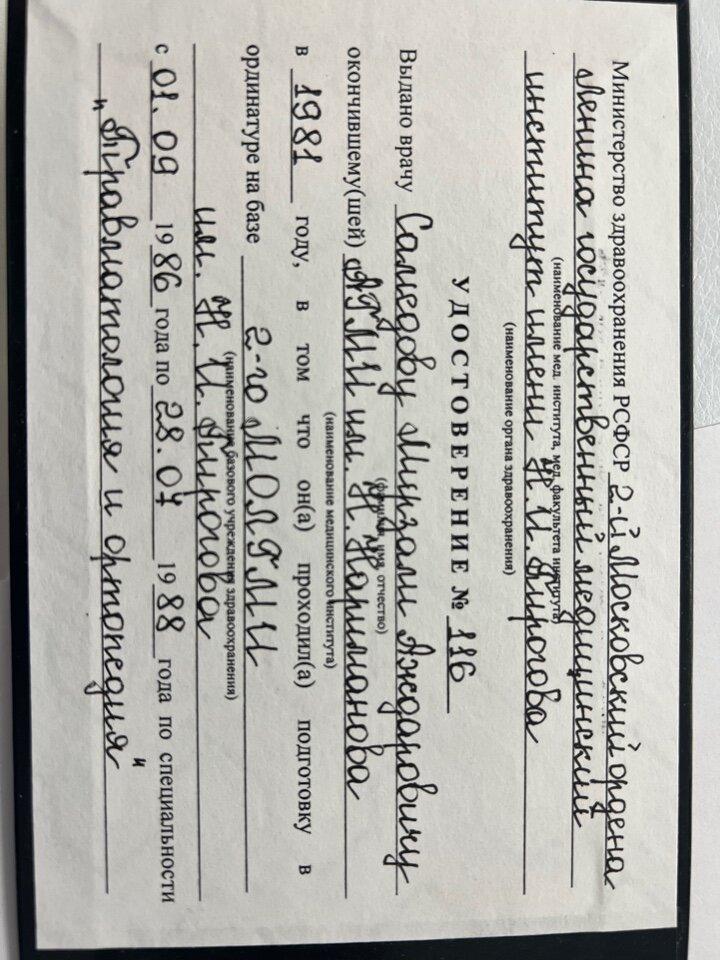 Министерство здравоохранения РСФСР 2-й Московский ордена
Ленина государственный медицинский
(наименование мед. института, мед. факультета института)
институт имени Н.И. Пирогова
(наименование органа здравоохранения)
УДОСТОВЕРЕНИЕ № 116
Выдано врачу Самедову Мирзали Аждаровичу
(фамилия, имя, отчество)
окончившему(шей) АГМИ им. Н. Нариманова
(наименование медицинского института)
в 1981 году, в том что он(а) проходил(а) подготовку в
ординатуре на базе 2-го МОЛГМИ
(наименование базового учреждения здравоохранения)
им. Н.И. Пирогова
с 01.09 1986 года по 28.07 1988 года по специальности
"Травматология и ортопедия"